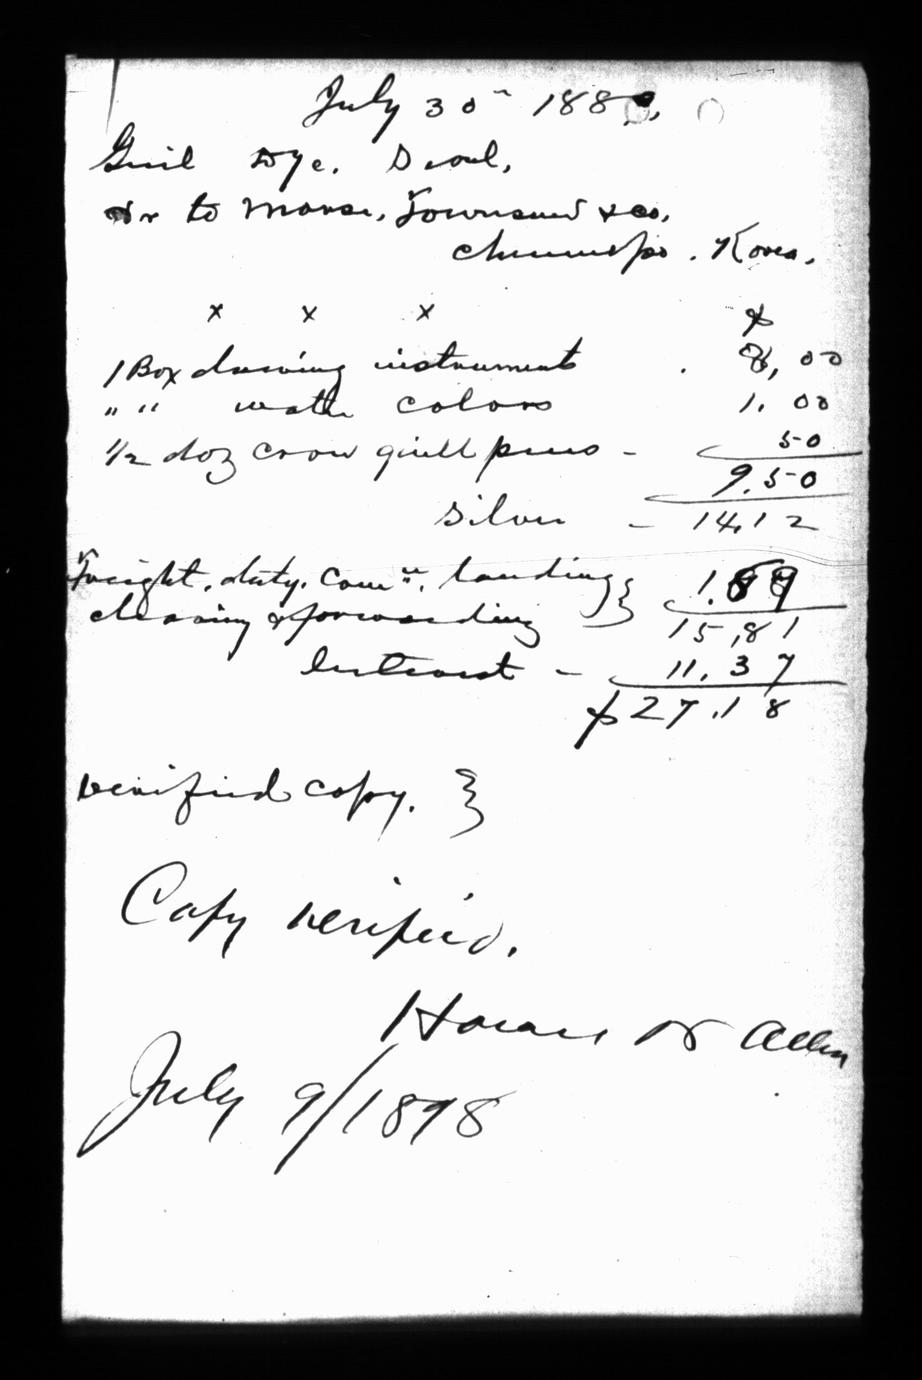 July 30" 188
Genl Dye. Seoul,
Dr to Morse, Townsend & co.
Chemulpo. Korea.
x x x $
1 Box drawing instruments . 8,00
" " water colors 1.00
1/2 doz crow quill pens - 50
9.50
Silver - 14,12
Freight, duty, Comn, landing }
clearing & forwarding } 1.69
15,81
Interest - 11.37
$27.18
verified copy. }
Copy verified.
Horace N Allen
July 9/1898